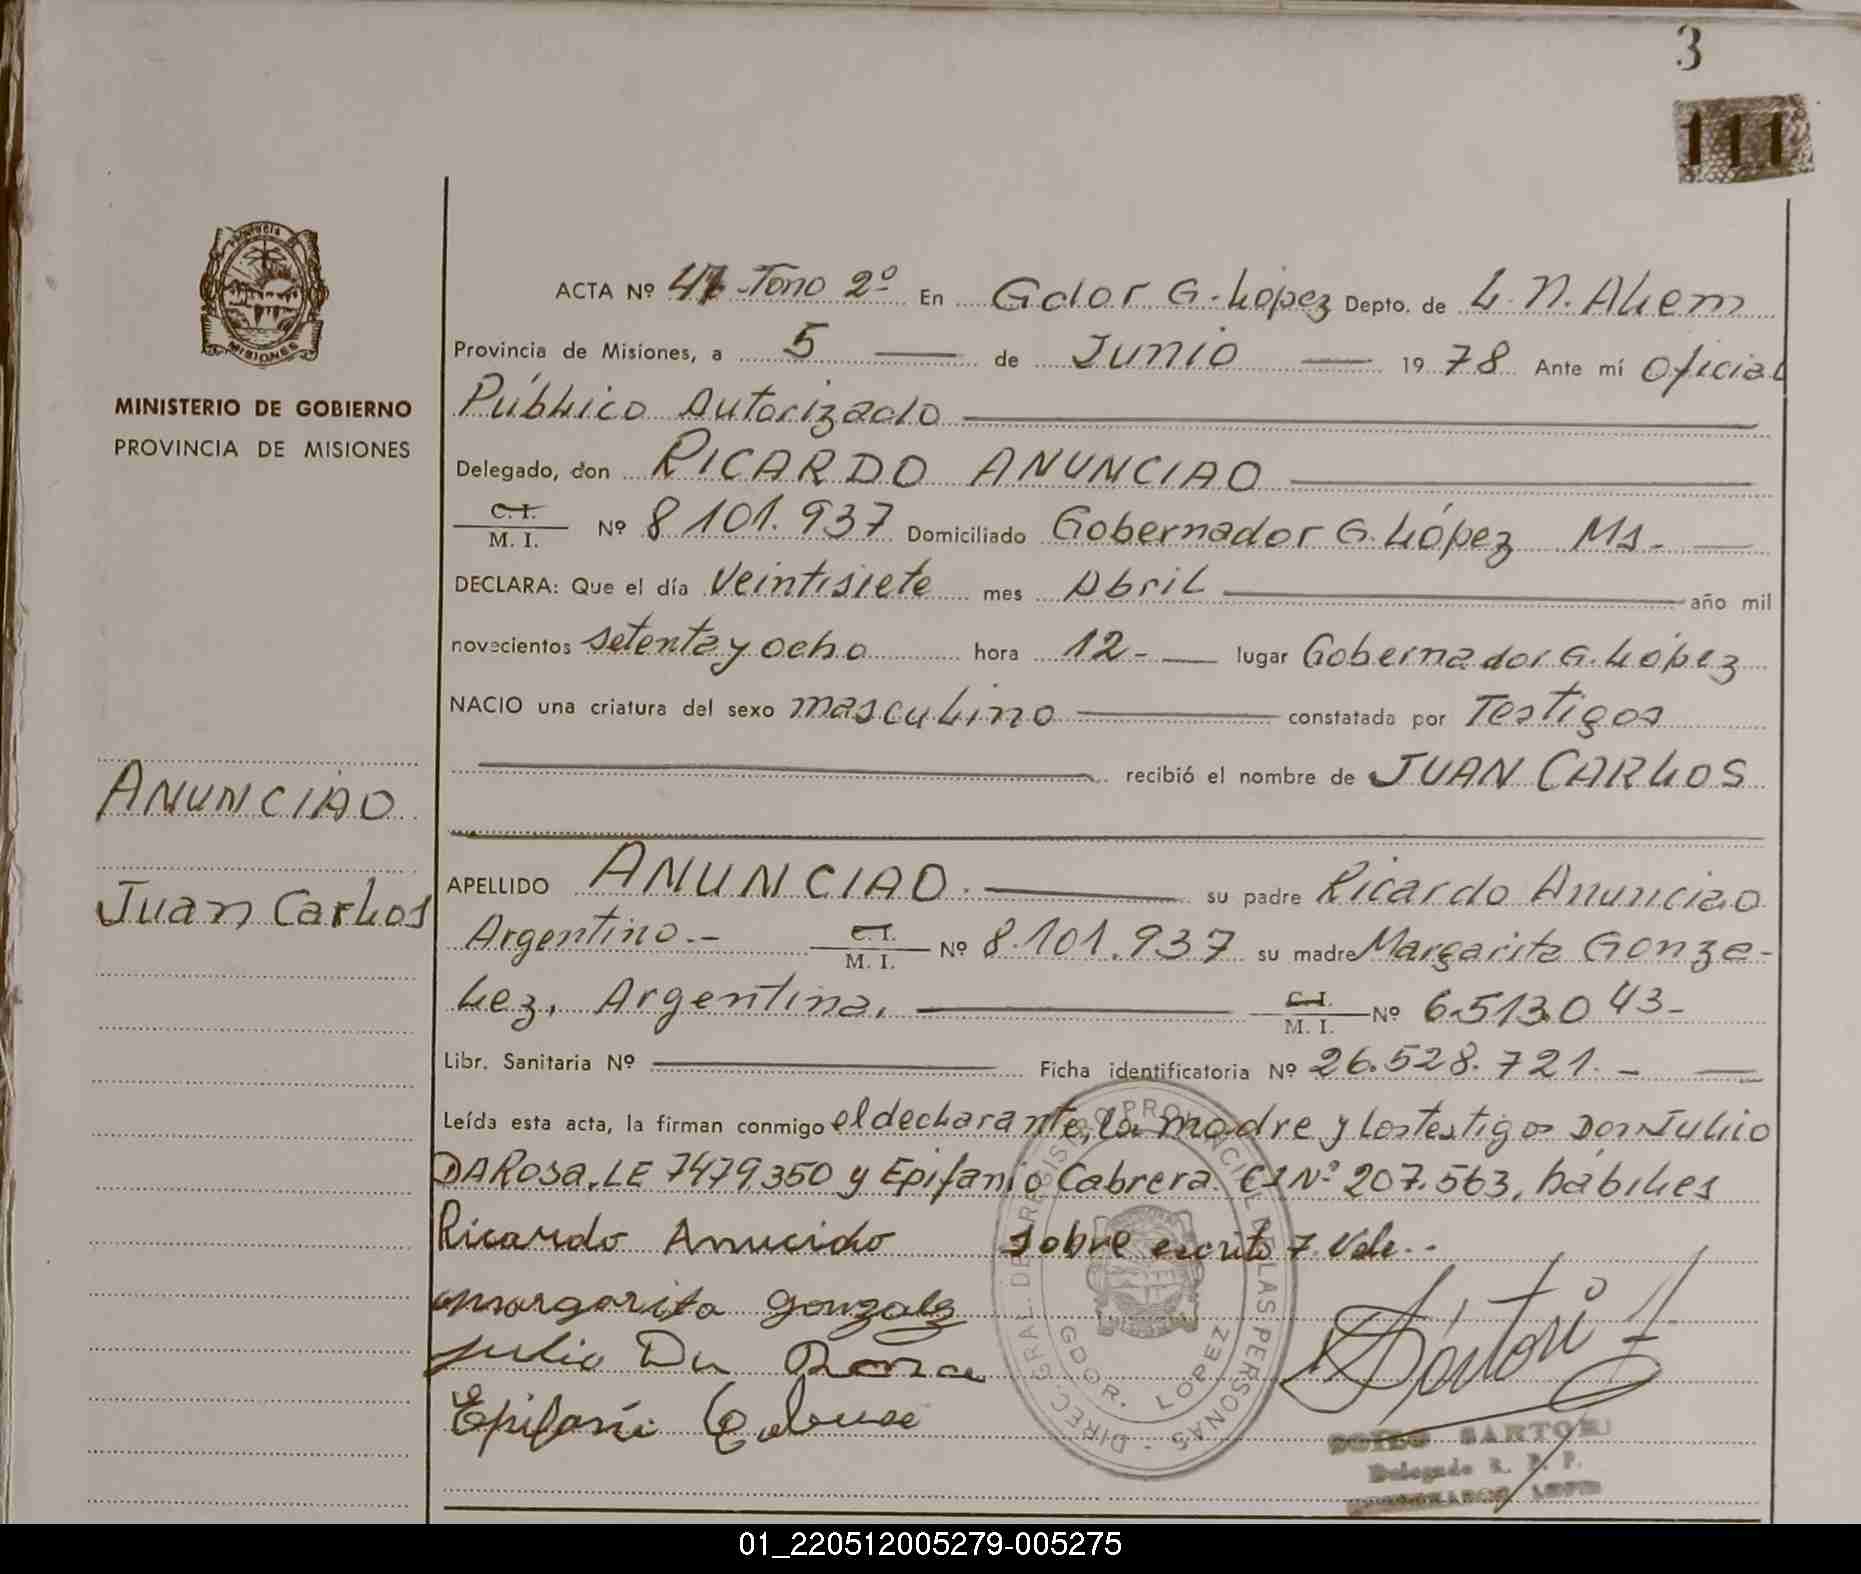 3
111
PROVINCIA
MISIONES
MINISTERIO DE GOBIERNO
PROVINCIA DE MISIONES
ANUNCIAO
Juan Carlos
ACTA Nº 47-Tomo 2º En Gdor G. López Depto. de L. N. Alem
Provincia de Misiones, a 5 de Junio 1978 Ante mí Oficial
Público Autorizado
Delegado, don RICARDO ANUNCIAO
C. I.
M. I. Nº 8101.937 Domiciliado Gobernador G. López Ms.
DECLARA: Que el día Veintisiete mes Abril año mil
novecientos setenta y ocho hora 12- lugar Gobernador G. López
NACIO una criatura del sexo masculino constatada por Testigos
recibió el nombre de JUAN CARLOS
APELLIDO ANUNCIAO. su padre Ricardo Anunciao
Argentino.- C. I. M. I. Nº 8.101.937 su madre Margarita Gonza-
lez, Argentina, C. I. M. I. Nº 6.513.043-
Libr. Sanitaria Nº Ficha identificatoria Nº 26.528.721.-
Leída esta acta, la firman conmigo el declarante, la madre y los testigos Don Julio
DA Rosa, LE 7479.350 y Epifanio Cabrera CI Nº 207.563, hábiles
Ricardo Anucido sobre escrito 7. Vale.-
margarita gonzalz
Julio Da Roza
Epifanio
Sartori
DIREC. GRAL. DE REGISTRO PROVINCIAL DE LAS PERSONAS -
GDOR. LOPEZ
SARTORI
Delegado R. P. P.
01_220512005279-005275